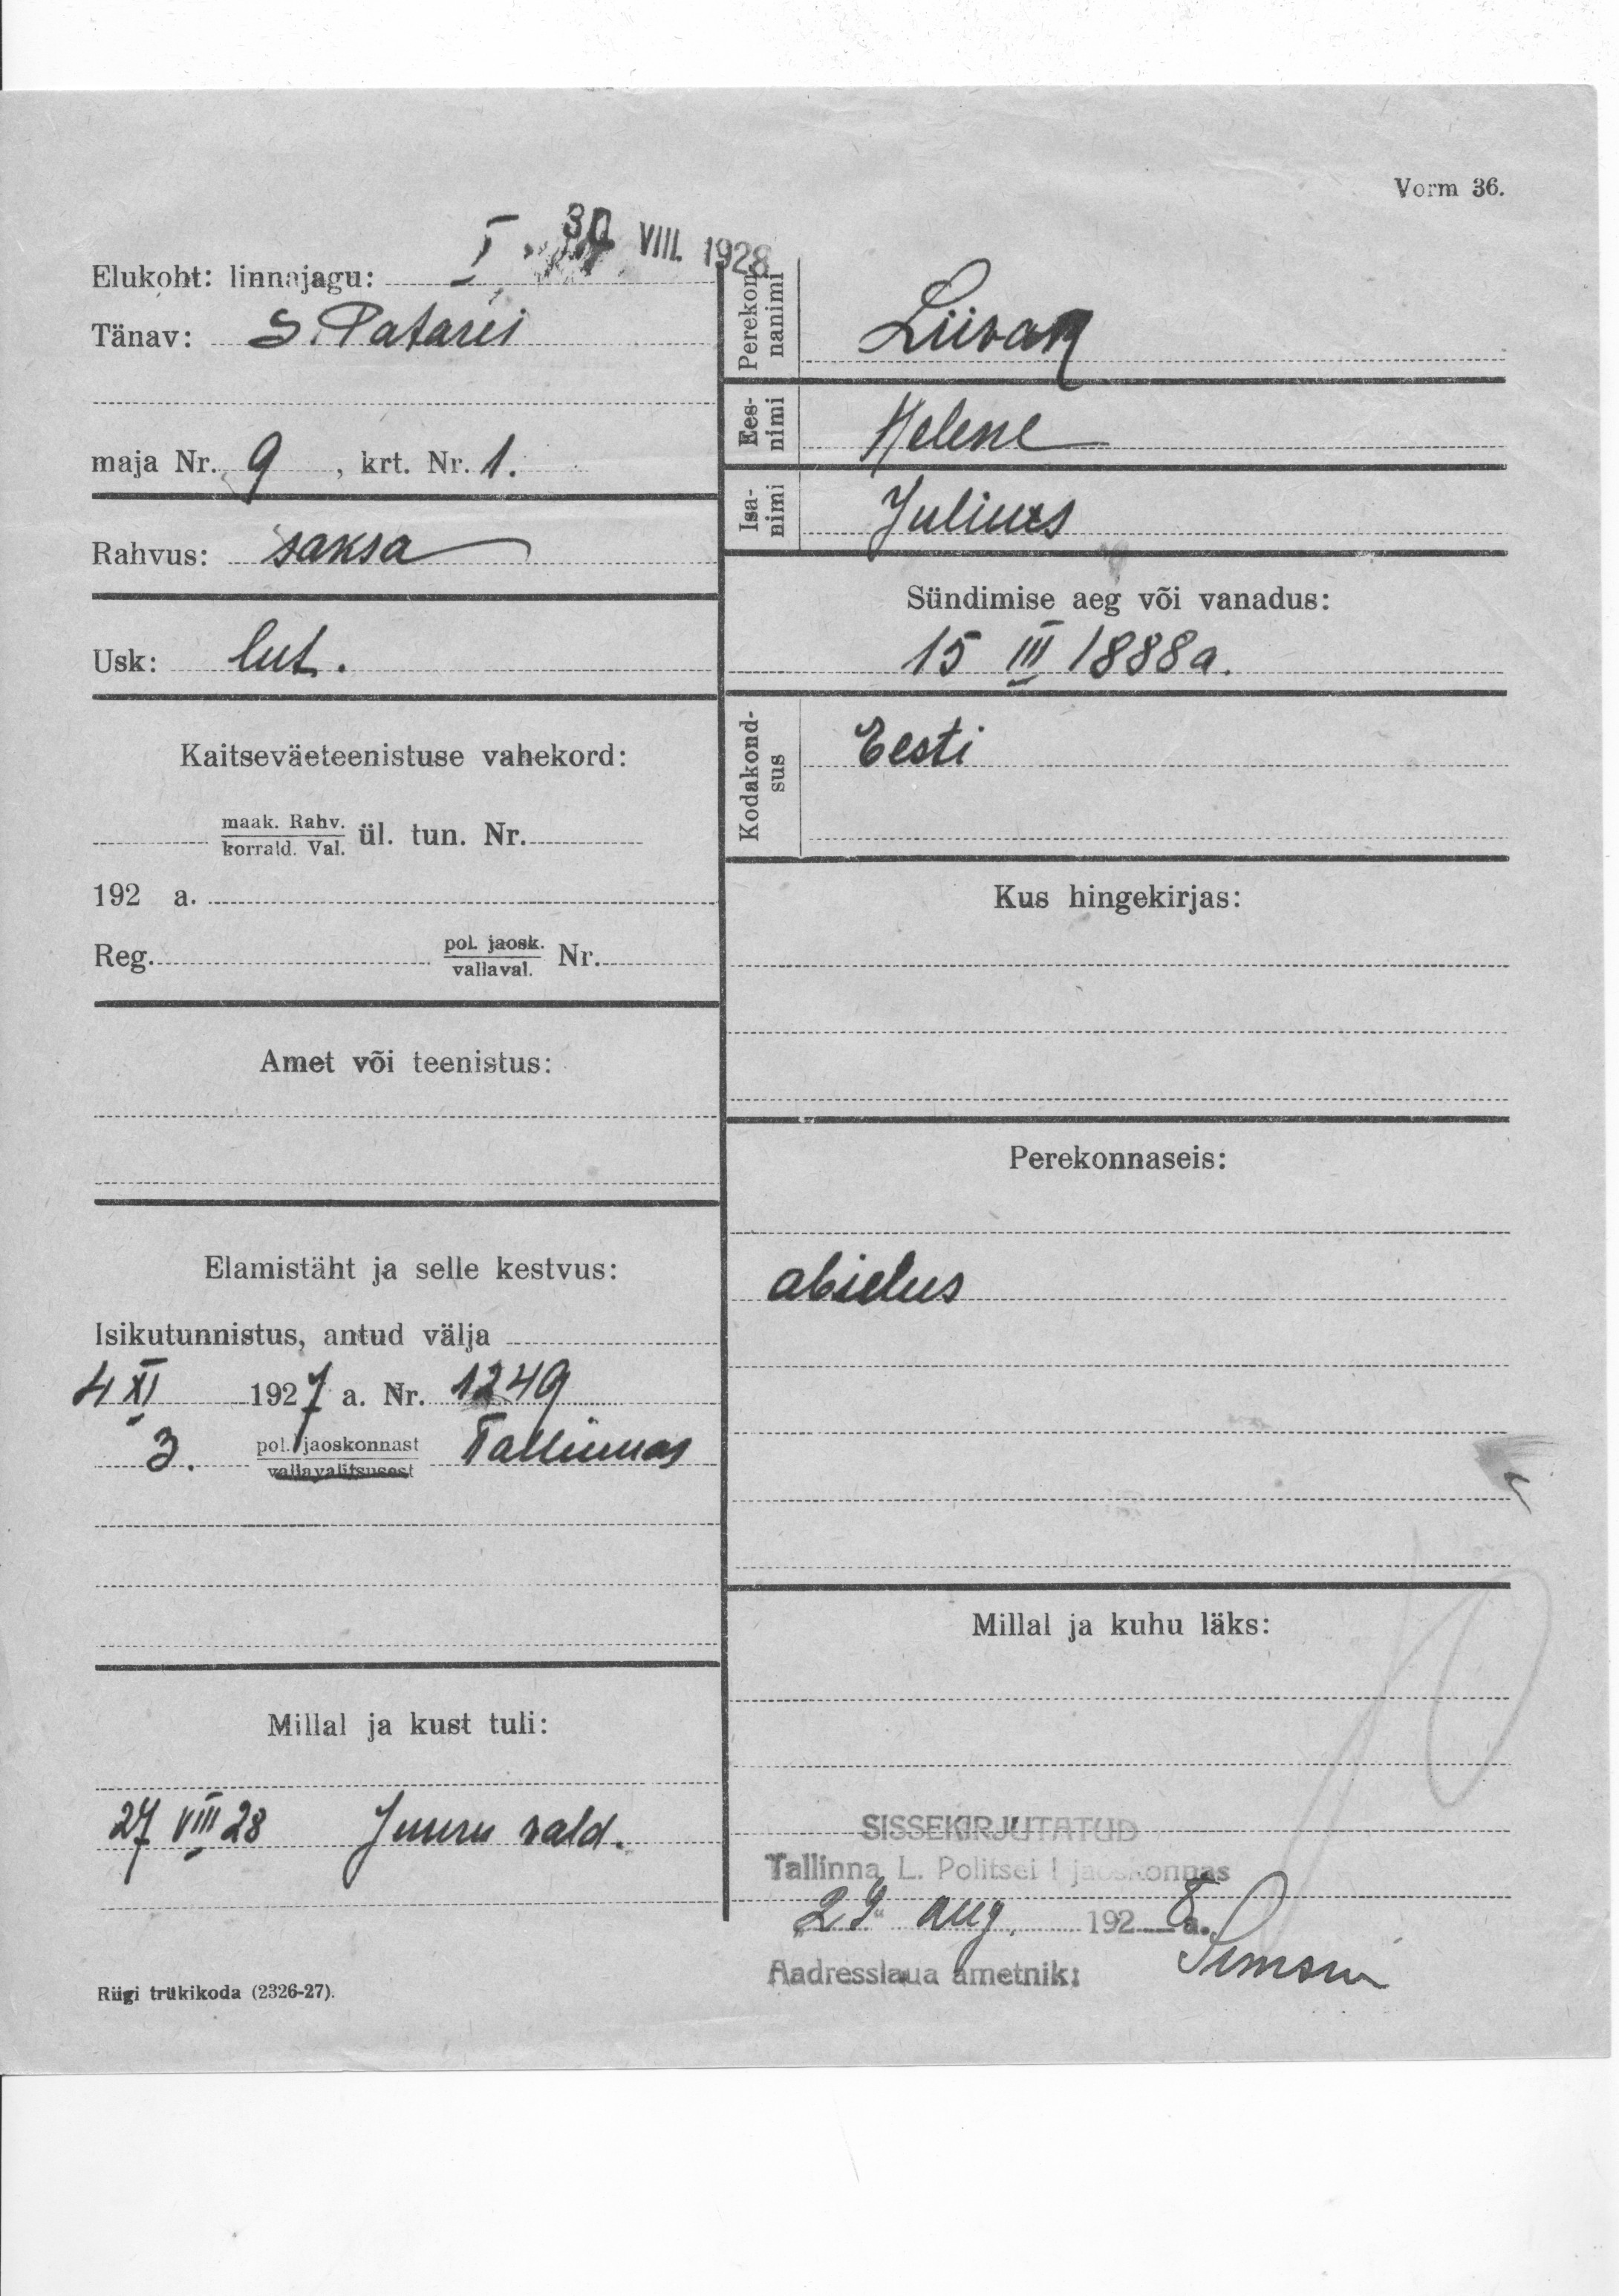 Vorm 36.
30 VIII. 1928
Elukoht: linnajagu: I
Tänav: S. Patarei
maja Nr. 9, krt. Nr. 1.
Rahvus: saksa
Usk: lut.
Kaitseväeteenistuse vahekord:
maak. Rahv.
korrald. Val. ül. tun. Nr.
192 a.
Reg. pol. jaosk.
vallaval. Nr.
Amet või teenistus:
Elamistäht ja selle kestvus:
Isikutunnistus, antud välja
4 XI 1927 a. Nr. 1249
3. pol. jaoskonnast Tallinnas
vallavalitsusest
Millal ja kust tuli:
27 VIII 28 Juuru vald.
Riigi trükikoda (2326-27).
Perekon-
nanimi
Liivak
Ees-
nimi
Helene
Isa-
nimi
Julius
Sündimise aeg või vanadus:
15 III 1888a.
Kodakond-
sus
Eesti
Kus hingekirjas:
Perekonnaseis:
abielus
Millal ja kuhu läks:
SISSEKIRJUTATUD
Tallinna L. Politsei I jaoskonnas
"29" aug. 1928 a.
Aadresslaua ametnik: